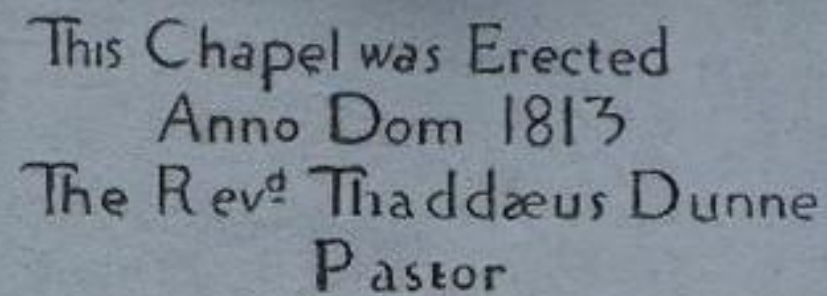 This Chapel was Erected
Anno Dom 1813
The Revᵈ Thaddæus Dunne
Pastor